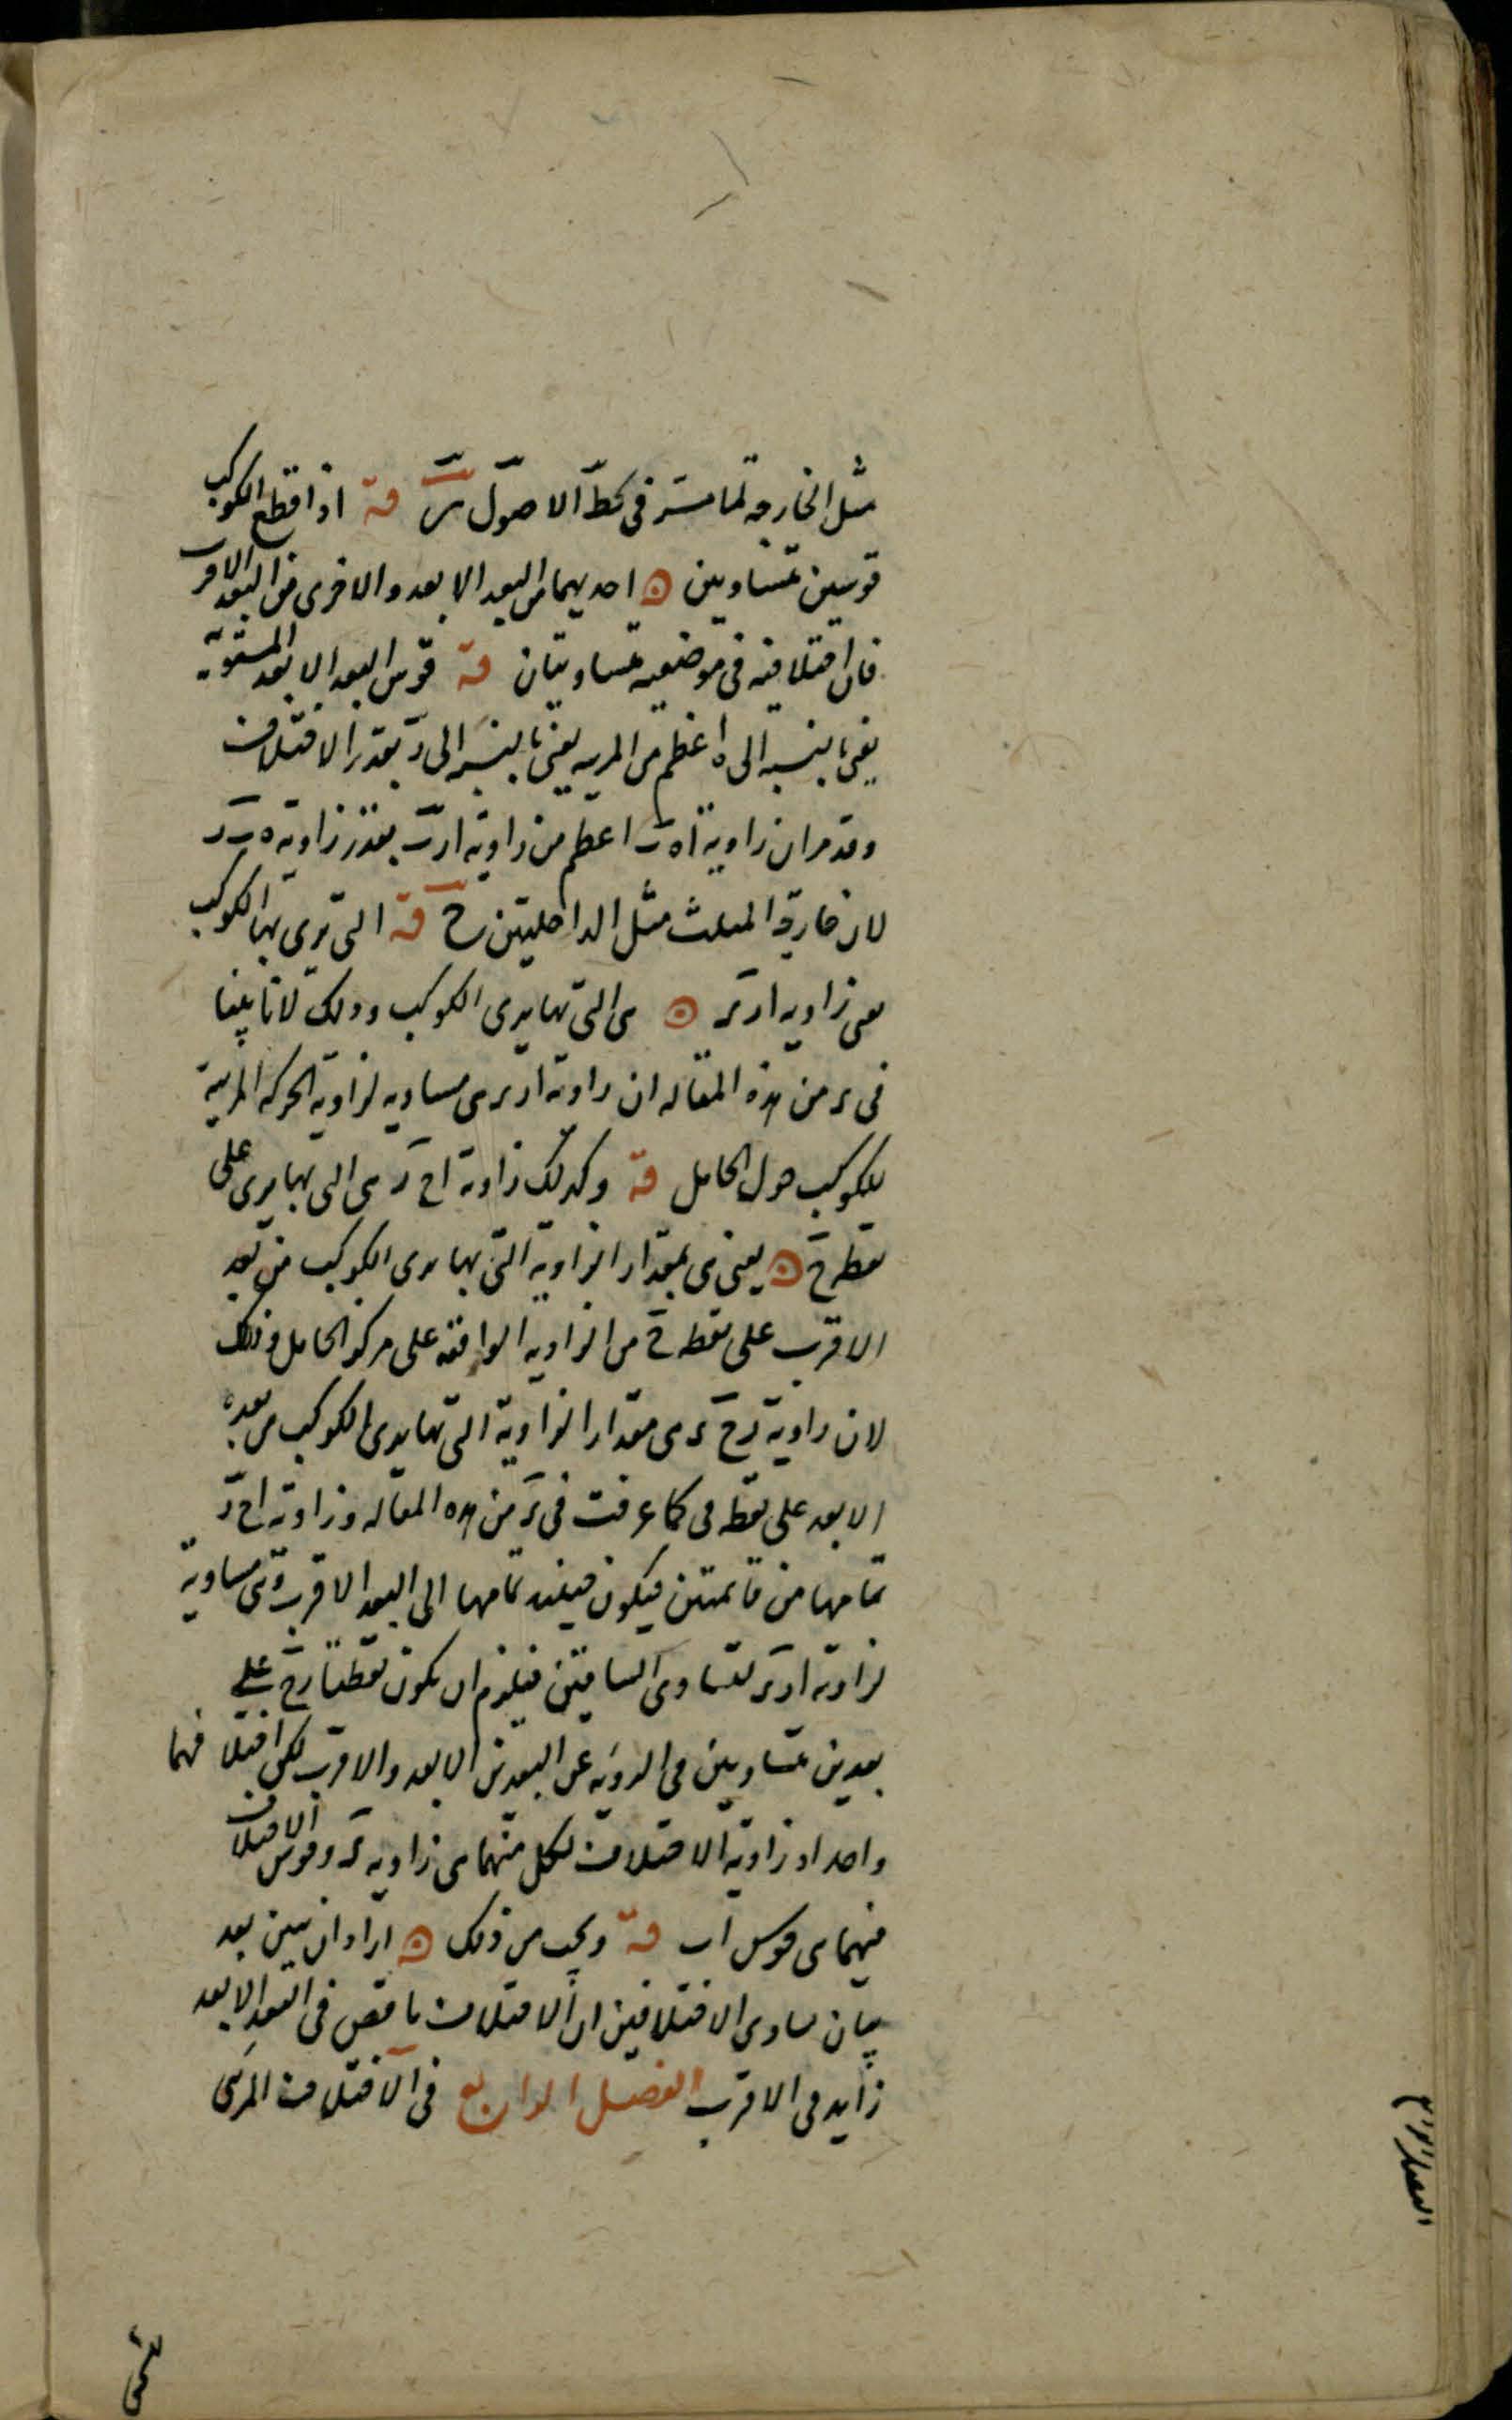 مثل الخارجه لما مر فى كط الاصول قه اذا قطع الكوكب
قوسين متساويين احديهما من البعد الابعد والاخرى من البعد الاقرب
فان اختلافيه فى موضعيه متساويتان قه قوس البعد الابعد المستوية
يعنى بالنسبه الى ه اعظم من المريه يعنى بالنسبه الى د بقدر الاختلاف
وقد مر ان زاوية اه اعظم من زاوية اد بقدر زاوية
لان خارجة المثلث مثل الداخليتين قه التى يرى بها الكوكب
يعنى زاويه ادر هى التى بها يرى الكوكب وذلك لانا بينا
فى من هذه المقاله ان زاوية ادر هى مساويه لزاوية الحركه المرئية
للكوكب حول الحامل قه وكذلك زاوية اح د هى التى بها يرى على
نقطه ح يعنى هى بمقدار الزاوية التى بها يرى الكوكب من بعد
الاقرب على نقطه ح من الزاوية الواقعه على مركز الحامل وذلك
لان زاوية دح ر هى مقدار الزاوية التى بها يرى الكوكب من بعده
الابعد على نقطه كما عرفت فى من هذه المقاله وزاوية اح د
تمامها من قائمتين فيكون حينئذ تمامها الى البعد الاقرب وهى مساوية
لزاوية ادر لتساوى الساقين فيلزم ان يكون نقطتا رح على
بعدين متساويين فى الرويه عن البعدين الابعد والاقرب لكن اختلافهما
واحد اذ زاوية الاختلاف لكل منهما هى زاويه وقوس الاختلاف
فيهما هى قوس اب قه ويجب من ذلك اراد ان يبين بعد
بيان تساوى الاختلافين ان الاختلاف ناقص فى البعد الابعد
زايد فى الاقرب الفصل الرابع فى الاختلاف المرئى
الفصل الرابع